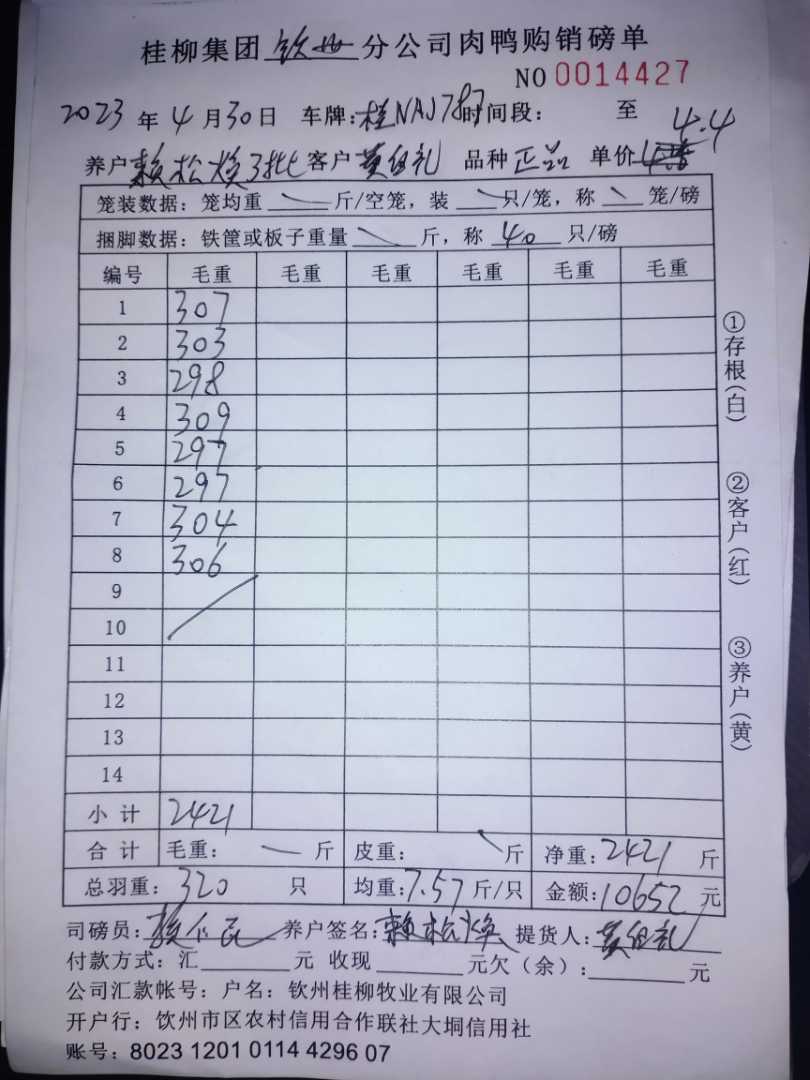 桂柳集团 钦州 分公司肉鸭购销磅单
NO 0014427
2023 年 4 月 30 日 车牌:桂NAJ787 时间段: 至
养户 赖松焕3批 客户 黄组礼 品种 正品 单价 4.4
笼装数据: 笼均重 斤/空笼, 装 只/笼, 称 笼/磅
捆脚数据: 铁筐或板子重量 斤, 称 40 只/磅
编号 毛重 毛重 毛重 毛重 毛重 毛重
1 307
2 303
3 298
4 309
5 297
6 297
7 304
8 306
9
10
11
12
13
14
小计 2421
合计 毛重: 斤 皮重: 斤 净重: 2421 斤
总羽重: 320 只 均重: 7.57 斤/只 金额: 10652 元
司磅员: 养户签名: 赖松焕 提货人: 黄组礼
付款方式: 汇 元 收现 元欠(余): 元
公司汇款帐号: 户名: 钦州桂柳牧业有限公司
开户行: 钦州市区农村信用合作联社大垌信用社
账号: 8023 1201 0114 4296 07
①存根(白)
②客户(红)
③养户(黄)